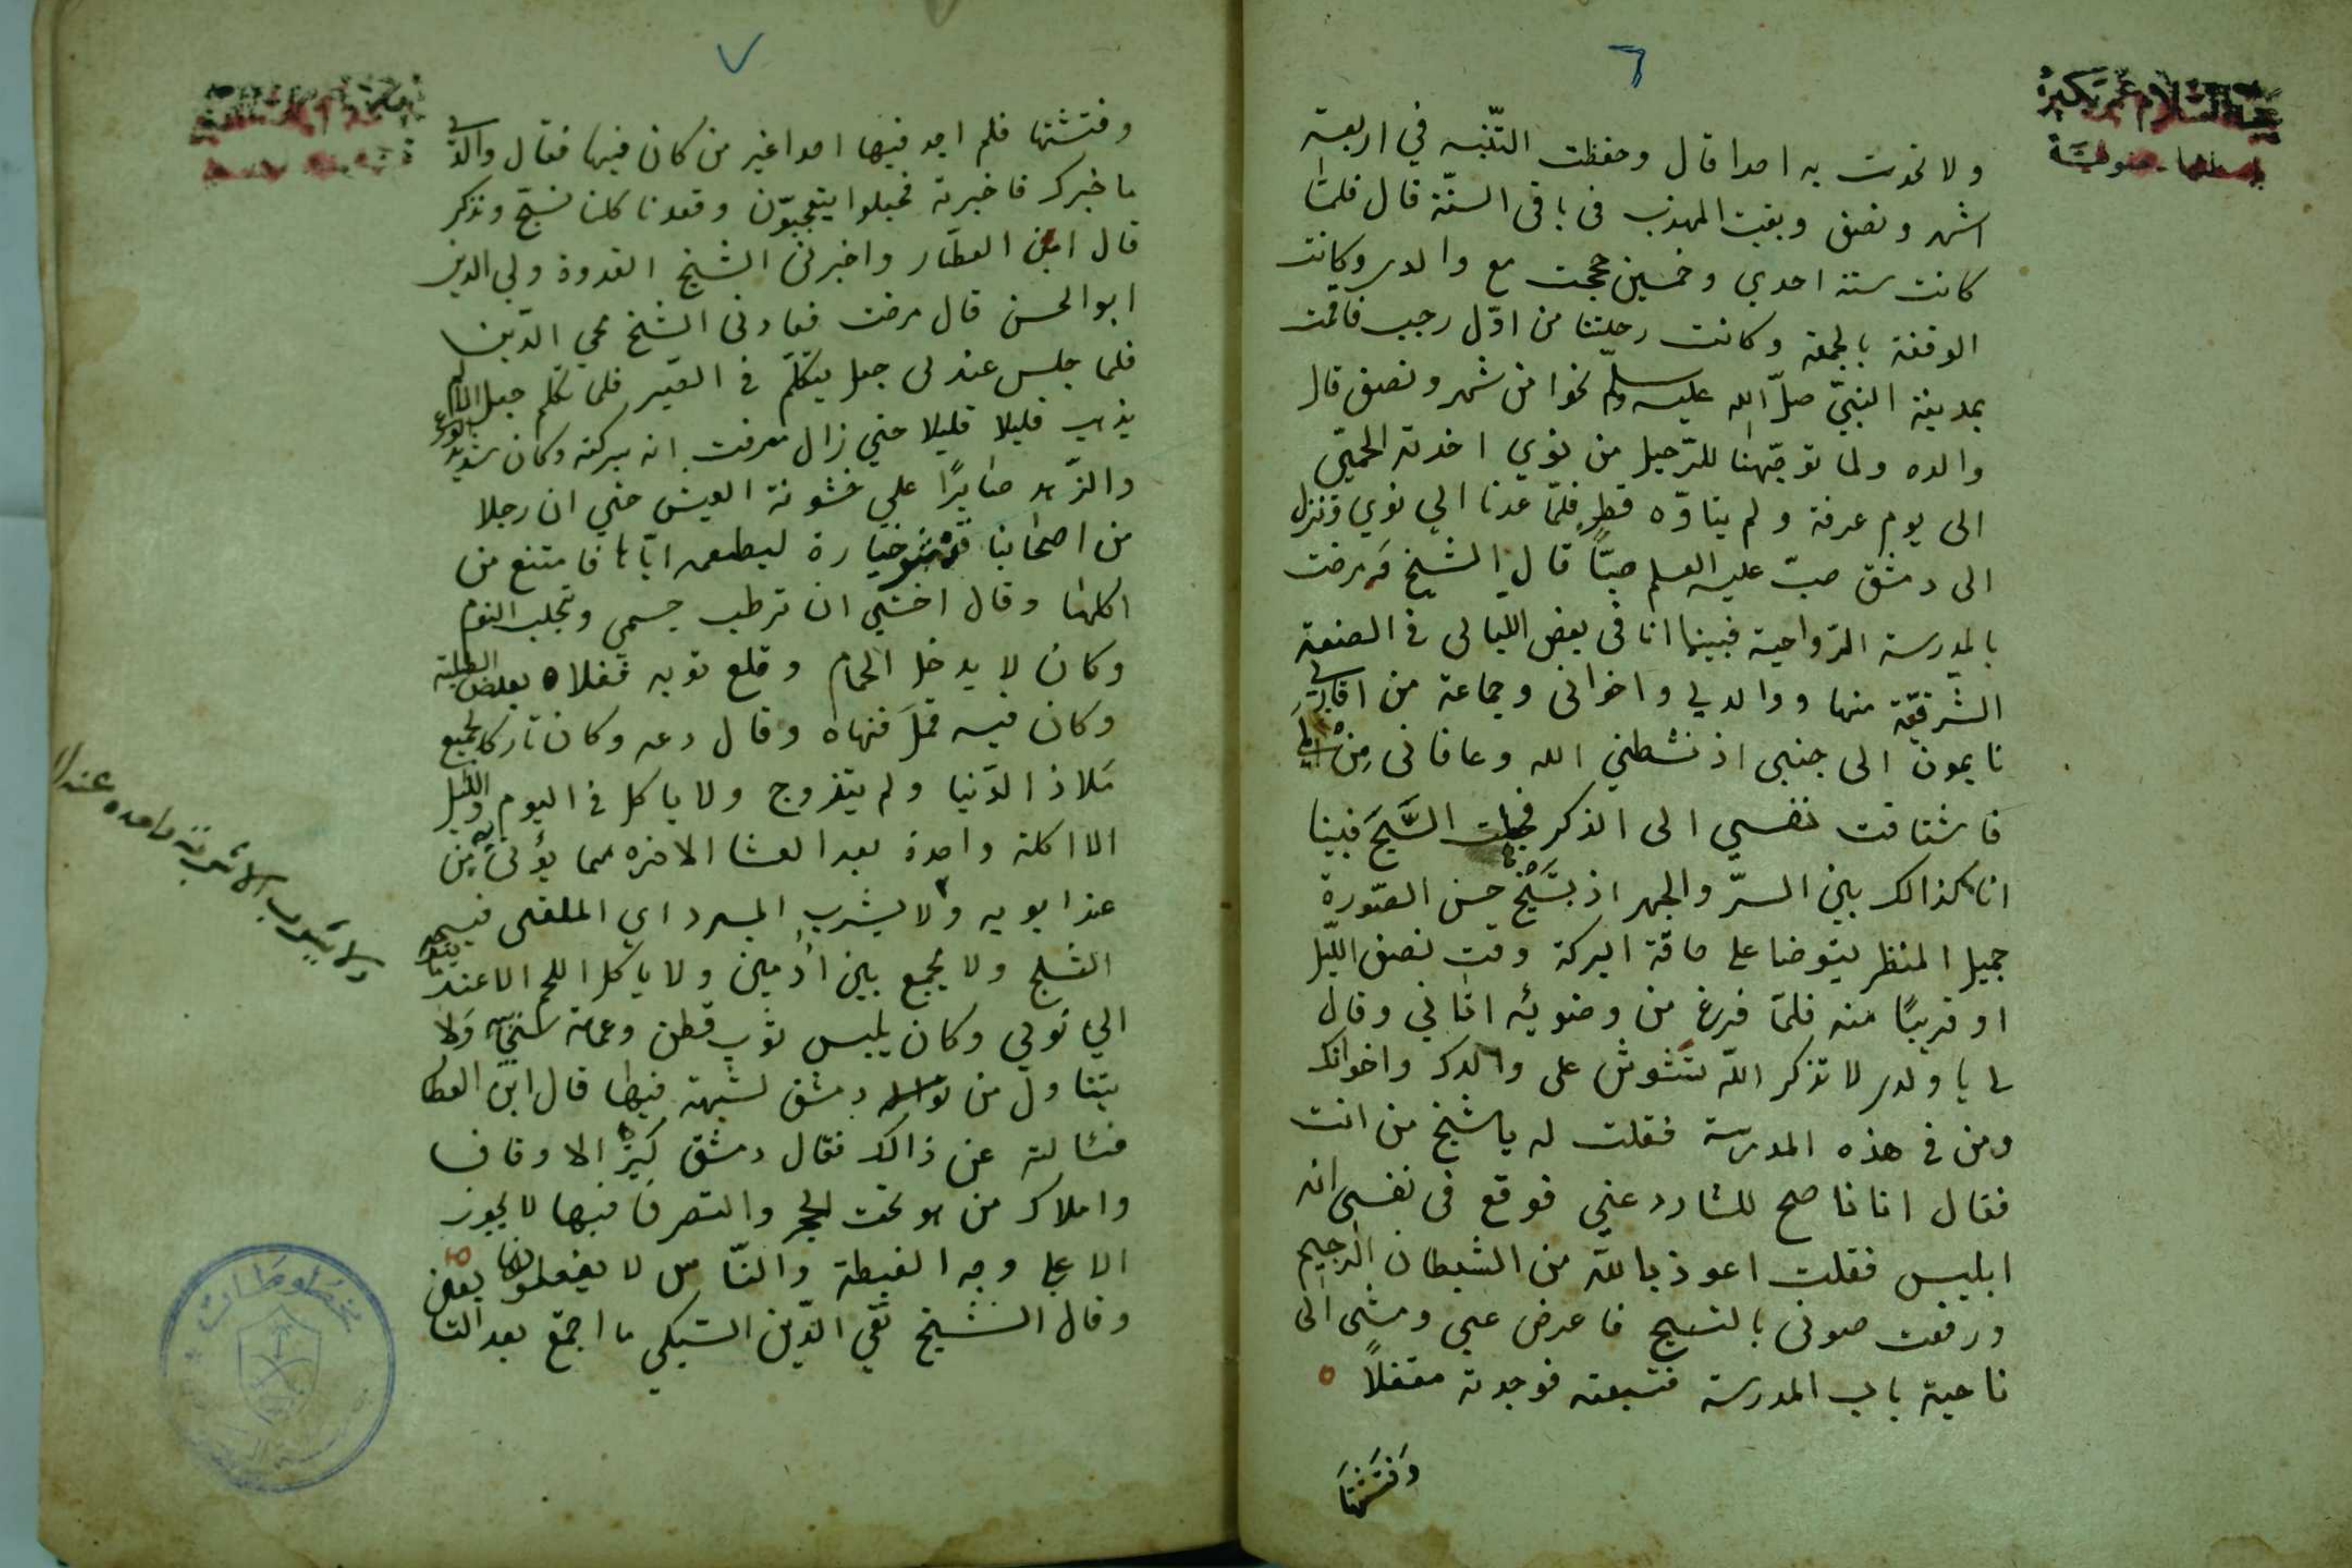 ٦
ولا تحدث به احدا قال وحفظت التنبيه في اربعة
اشهر ونصف وبقيت المهذب فى باقى السنّة قال فلمّا
كانت سنة احدي وخمسين حججت مع والدى وكانت
الوقفة بالجمعة وكانت رحلتنا من اوّل رجب فاقمت
بمدينة النبيّ صلّ الله عليه وسلّم نحوا من شهر ونصف قال
والده ولما توجّهنا للرّحيل من نوي اخذته الحمّى
الى يوم عرفة ولم يتاوّه قط فلمّا عدنا الي نوي ونزل
الى دمشق صبّ عليه العلم صبّاً قال الشيخ ومرضت
بالمدرسة الرّواحية فبينما انا فى بعض الليالى فى الصفة
الشّرقيّة منها ووالدي واخوانى وجماعة من اقاربي
نايمون الى جنبى اذ نشطني الله وعافانى مِن
فاشتاقت نفسي الى الذكر فجعلت اسَبِّح فبينا
انا كذالك بين السرّ والجهر اذ بشَيْخ حسن الصّورة
جميل المنظر يتوضا على حافّة البركة وقت نصف الليّل
او قريبًا منه فلمّا فرغ من وضوئه اتاني وقال
لى يا ولدى لا تذكر الله تشوش على والدك واخوانك
ومن فى هذه المدرسة فقلت له يا شيخ من انت
فقال انا ناصح لك دعني فوقع فى نفسى انه
ابليس فقلت اعوذ بالله من الشيطان الرجيم
ورفعت صوتى بالتسبيح فاعرض عنى ومشى الى
ناحية باب المدرسة فتبعته فوجدته مقفلاً
وَفَتَشْتهَا
٧
وفتشتها فلم اجد فيها احدا غير من كان فيها فقال والدي
ما خبرك فاخبرته فجعلوا يتعجبوّن وقعدنا كلنا نسبّح ونذكر
قال ابن العطّار واخبرنى الشيخ القدوة ولي الدين
ابو الحسن قال مرضت فعادنى الشيخ محي الدّين
فلما جلس عندى جعل يتكلّم فى الصّبر فلما تكلم جعل الالم
يذهب قليلا قليلا حتي زال فعرفت انه ببركته وكان شديد الورع
والزّهد صابرًا علي خشونة العيش حتي ان رجلا
من اصحابنا قشر خيارة ليطعمه ايّاها فامتنع من
اكلها وقال اخشي ان ترطب جسمى وتجلب النوم
وكان لا يدخل الحمام وقلع ثوبه ففلاه بعض الطلبة
وكان فيه قمل فنهاه وقال دعه وكان تاركا لجميع
مَلاذ الدّنيا ولم يتزوج ولا ياكل فى اليوم والليّل
الا اكلة واحدة بعد العشا الاخره مما يؤتى به من
عند ابويه ولا يشرب المبرد اي الملقى فيه
الثلج ولا يجمع بين ادمين ولا ياكل اللحم الا عند
الي نوي وكان يلبس ثوب قطن وعمامة ولا
يتناول من دمشق لشبهة فيها قال ابن العطا
فسالته عن ذالك فقال دمشق كثيرة الاوقاف
واملاك من هو تحت الحجر والتصرف فيها لا يجوز
الا علي وجه الغبطة والنّاس لا يفعلونها بعض
وقال الشيخ تقي الدّين السّبكي ما اجتمع بعد التا
ولا يشرب الا شربة واحده عند